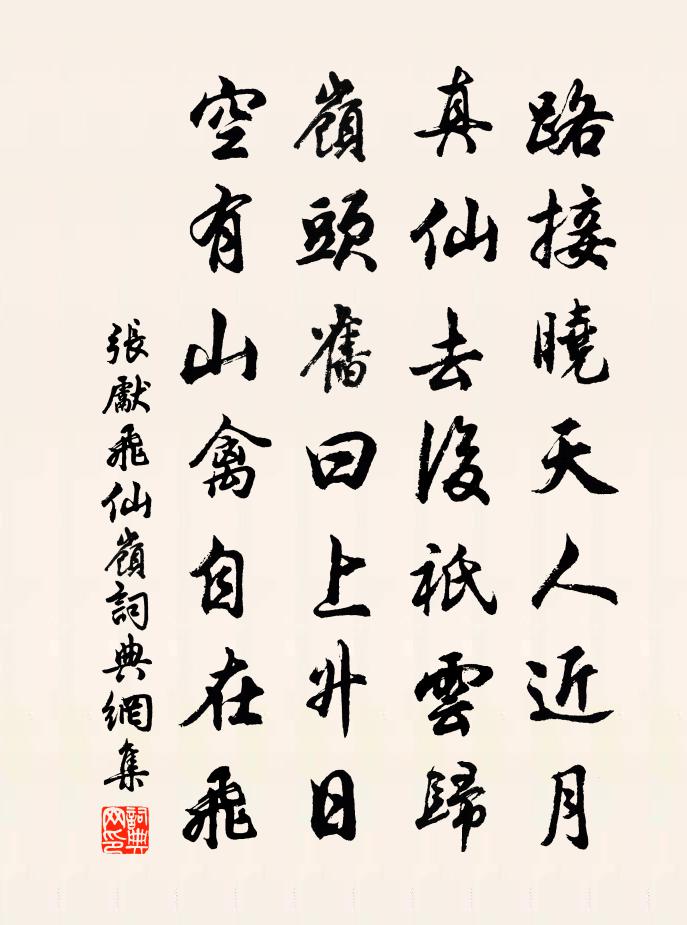 路接曉天人近月
真仙去後祇雲歸
嶺頭舊曰上升日
空有山禽自在飛
張獻飛仙嶺詞典網集
詞典
网印